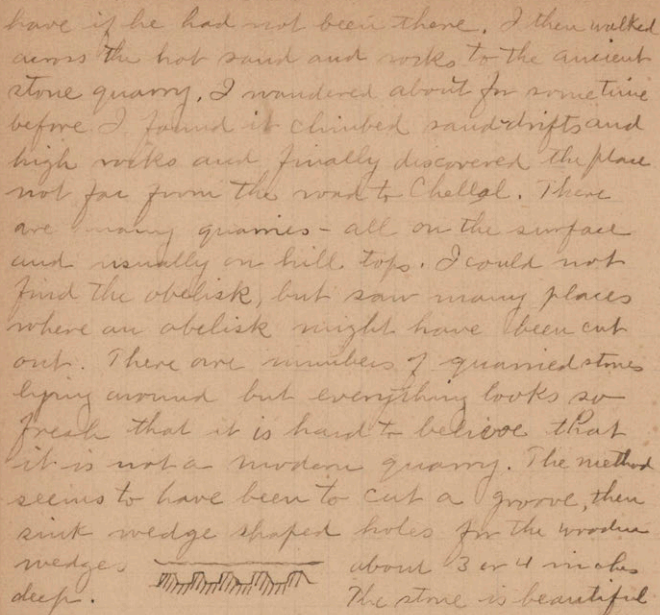 have if he had not been there. I then walked
across the hot sand and rocks to the ancient
stone quarry. I wandered about for sometime
before I found it climbed sand-drifts and
high rocks and finally discovered the place
not far from the road to Chellal. There
are many quarries - all on the surface
and usually on hill tops. I could not
find the obelisk, but saw many places
where an obelisk might have been cut
out. There are numbers of quarried stones
lying around but everything looks so
fresh that it is hard to believe that
it is not a modern quarry. The method
seems to have been to cut a groove, then
sink wedge shaped holes for the wooden
wedges about 3 or 4 inches
deep. The stone is beautiful